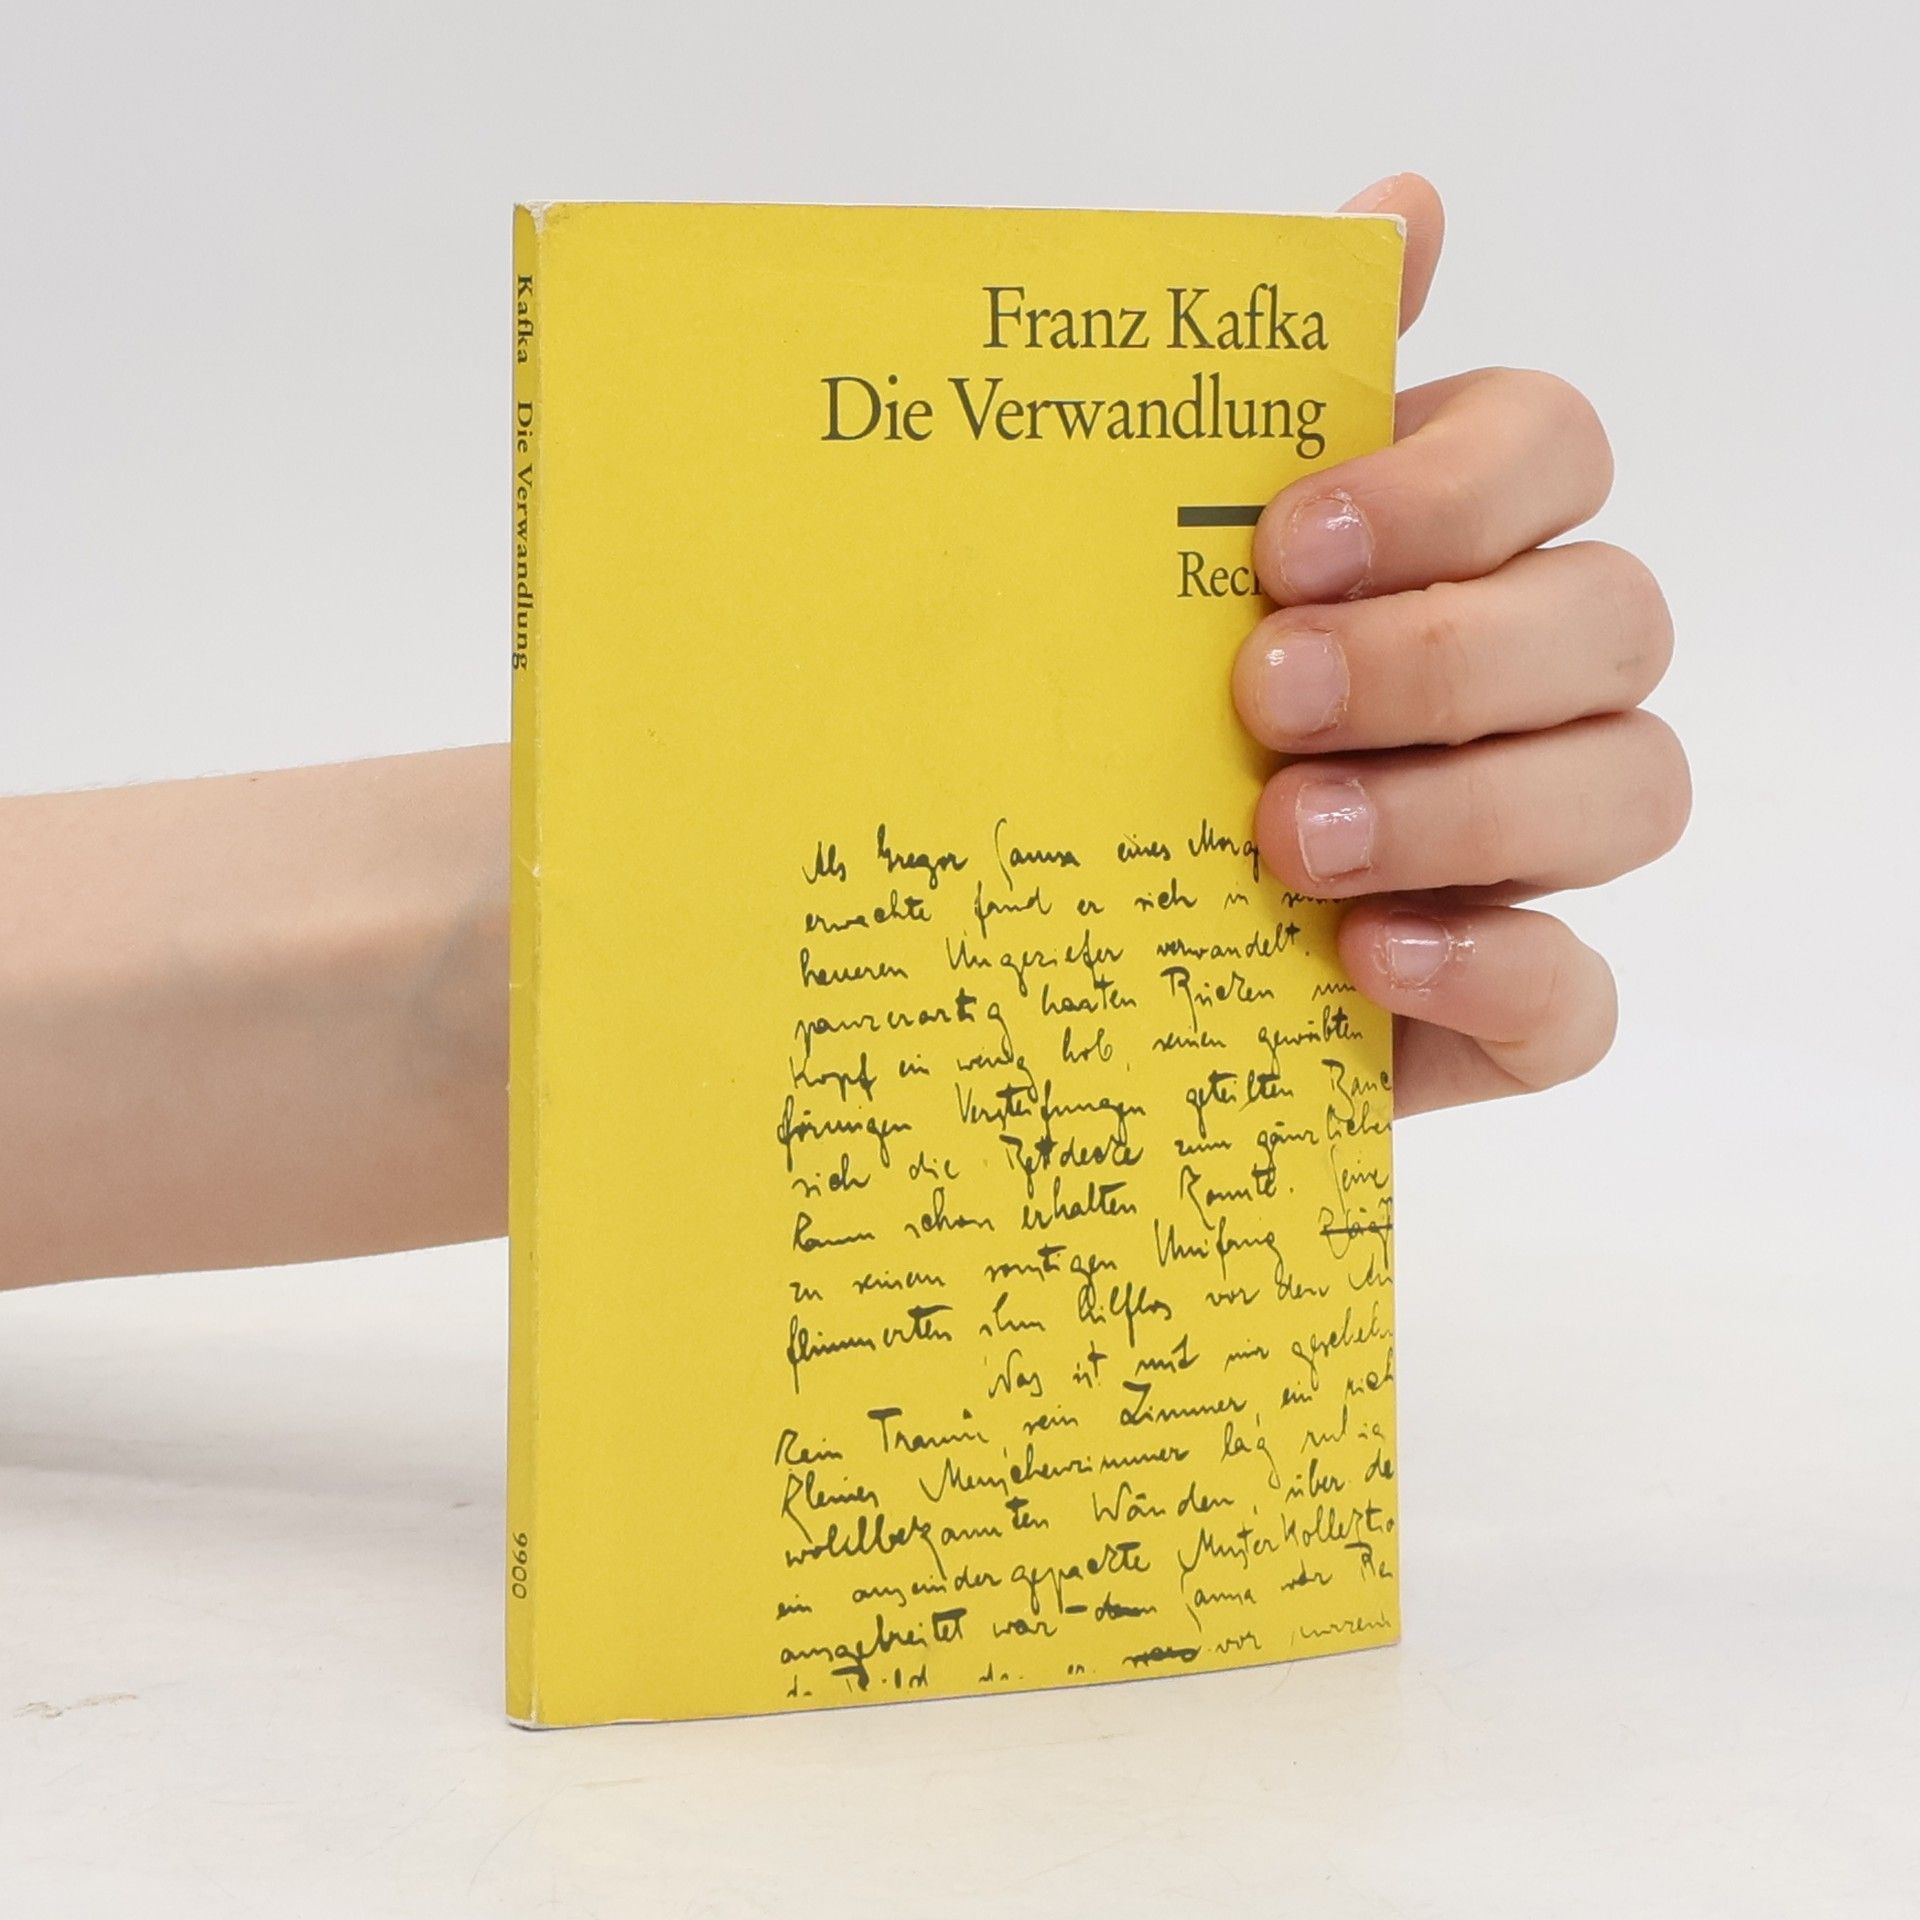 Franz Kafka
Die Verwandlung
Recl
Kafka Die Verwandlung
9900
Als Gregor Samsa eines Morg
erwachte fand er sich in
heueren Ungeziefer verwandelt.
panzerartig harten Rücken
Kopf ein wenig hob, seinen gewölbten
förmigen Versteifungen geteilten Bauc
sich die Bettdecke zum gänzlichen
kaum schon erhalten konnte. Seine
zu seinem sonstigen Umfang
flimmerten ihm hilflos vor den Au
Was ist mit mir gescheh
Kein Traum, sein Zimmer, ein rich
kleines Menschenzimmer lag ruhig
wohlbekannten Wänden, über de
ein auseinandergepackte Musterkollektio
ausgebreitet war – Samsa war Re
vor